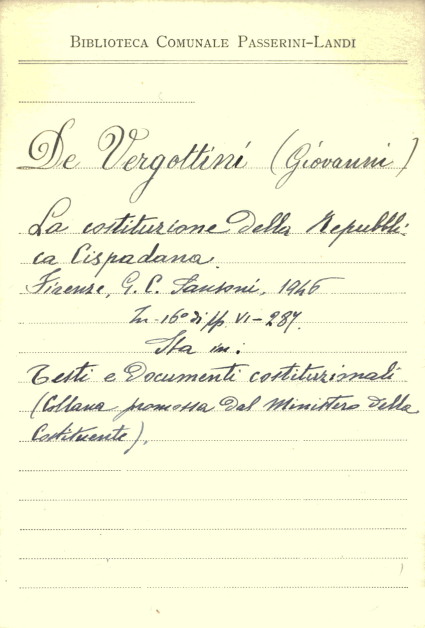 BIBLIOTECA COMUNALE PASSERINI-LANDI
De Vergottini (Giovanni)
La costituzione della Repubbli-
ca Cispadana.
Firenze, G. C. Sansoni, 1946
In-16° di pp. VI-287.
Sta in:
Testi e Documenti costituzionali
(Collana promossa dal Ministero della
Costituente).